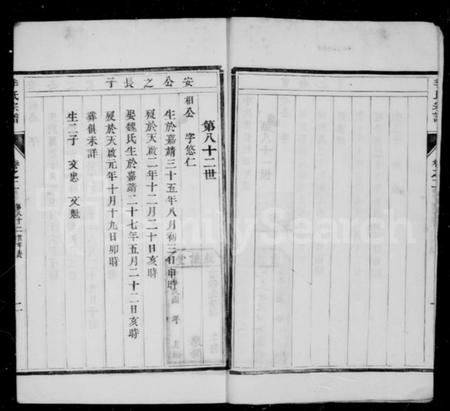 第八十二世
安公之長子
相公 字悠仁
生於嘉靖三十五年八月初三日申時
歿於天啟二年十二月二十日亥時
娶魏氏生於嘉靖二十七年五月二十二日亥時
歿於天啟元年十月十九日卯時
葬俱未詳
生二子 文忠 文魁
氏宗譜
卷之二
第八十二世年表
FamilySearch